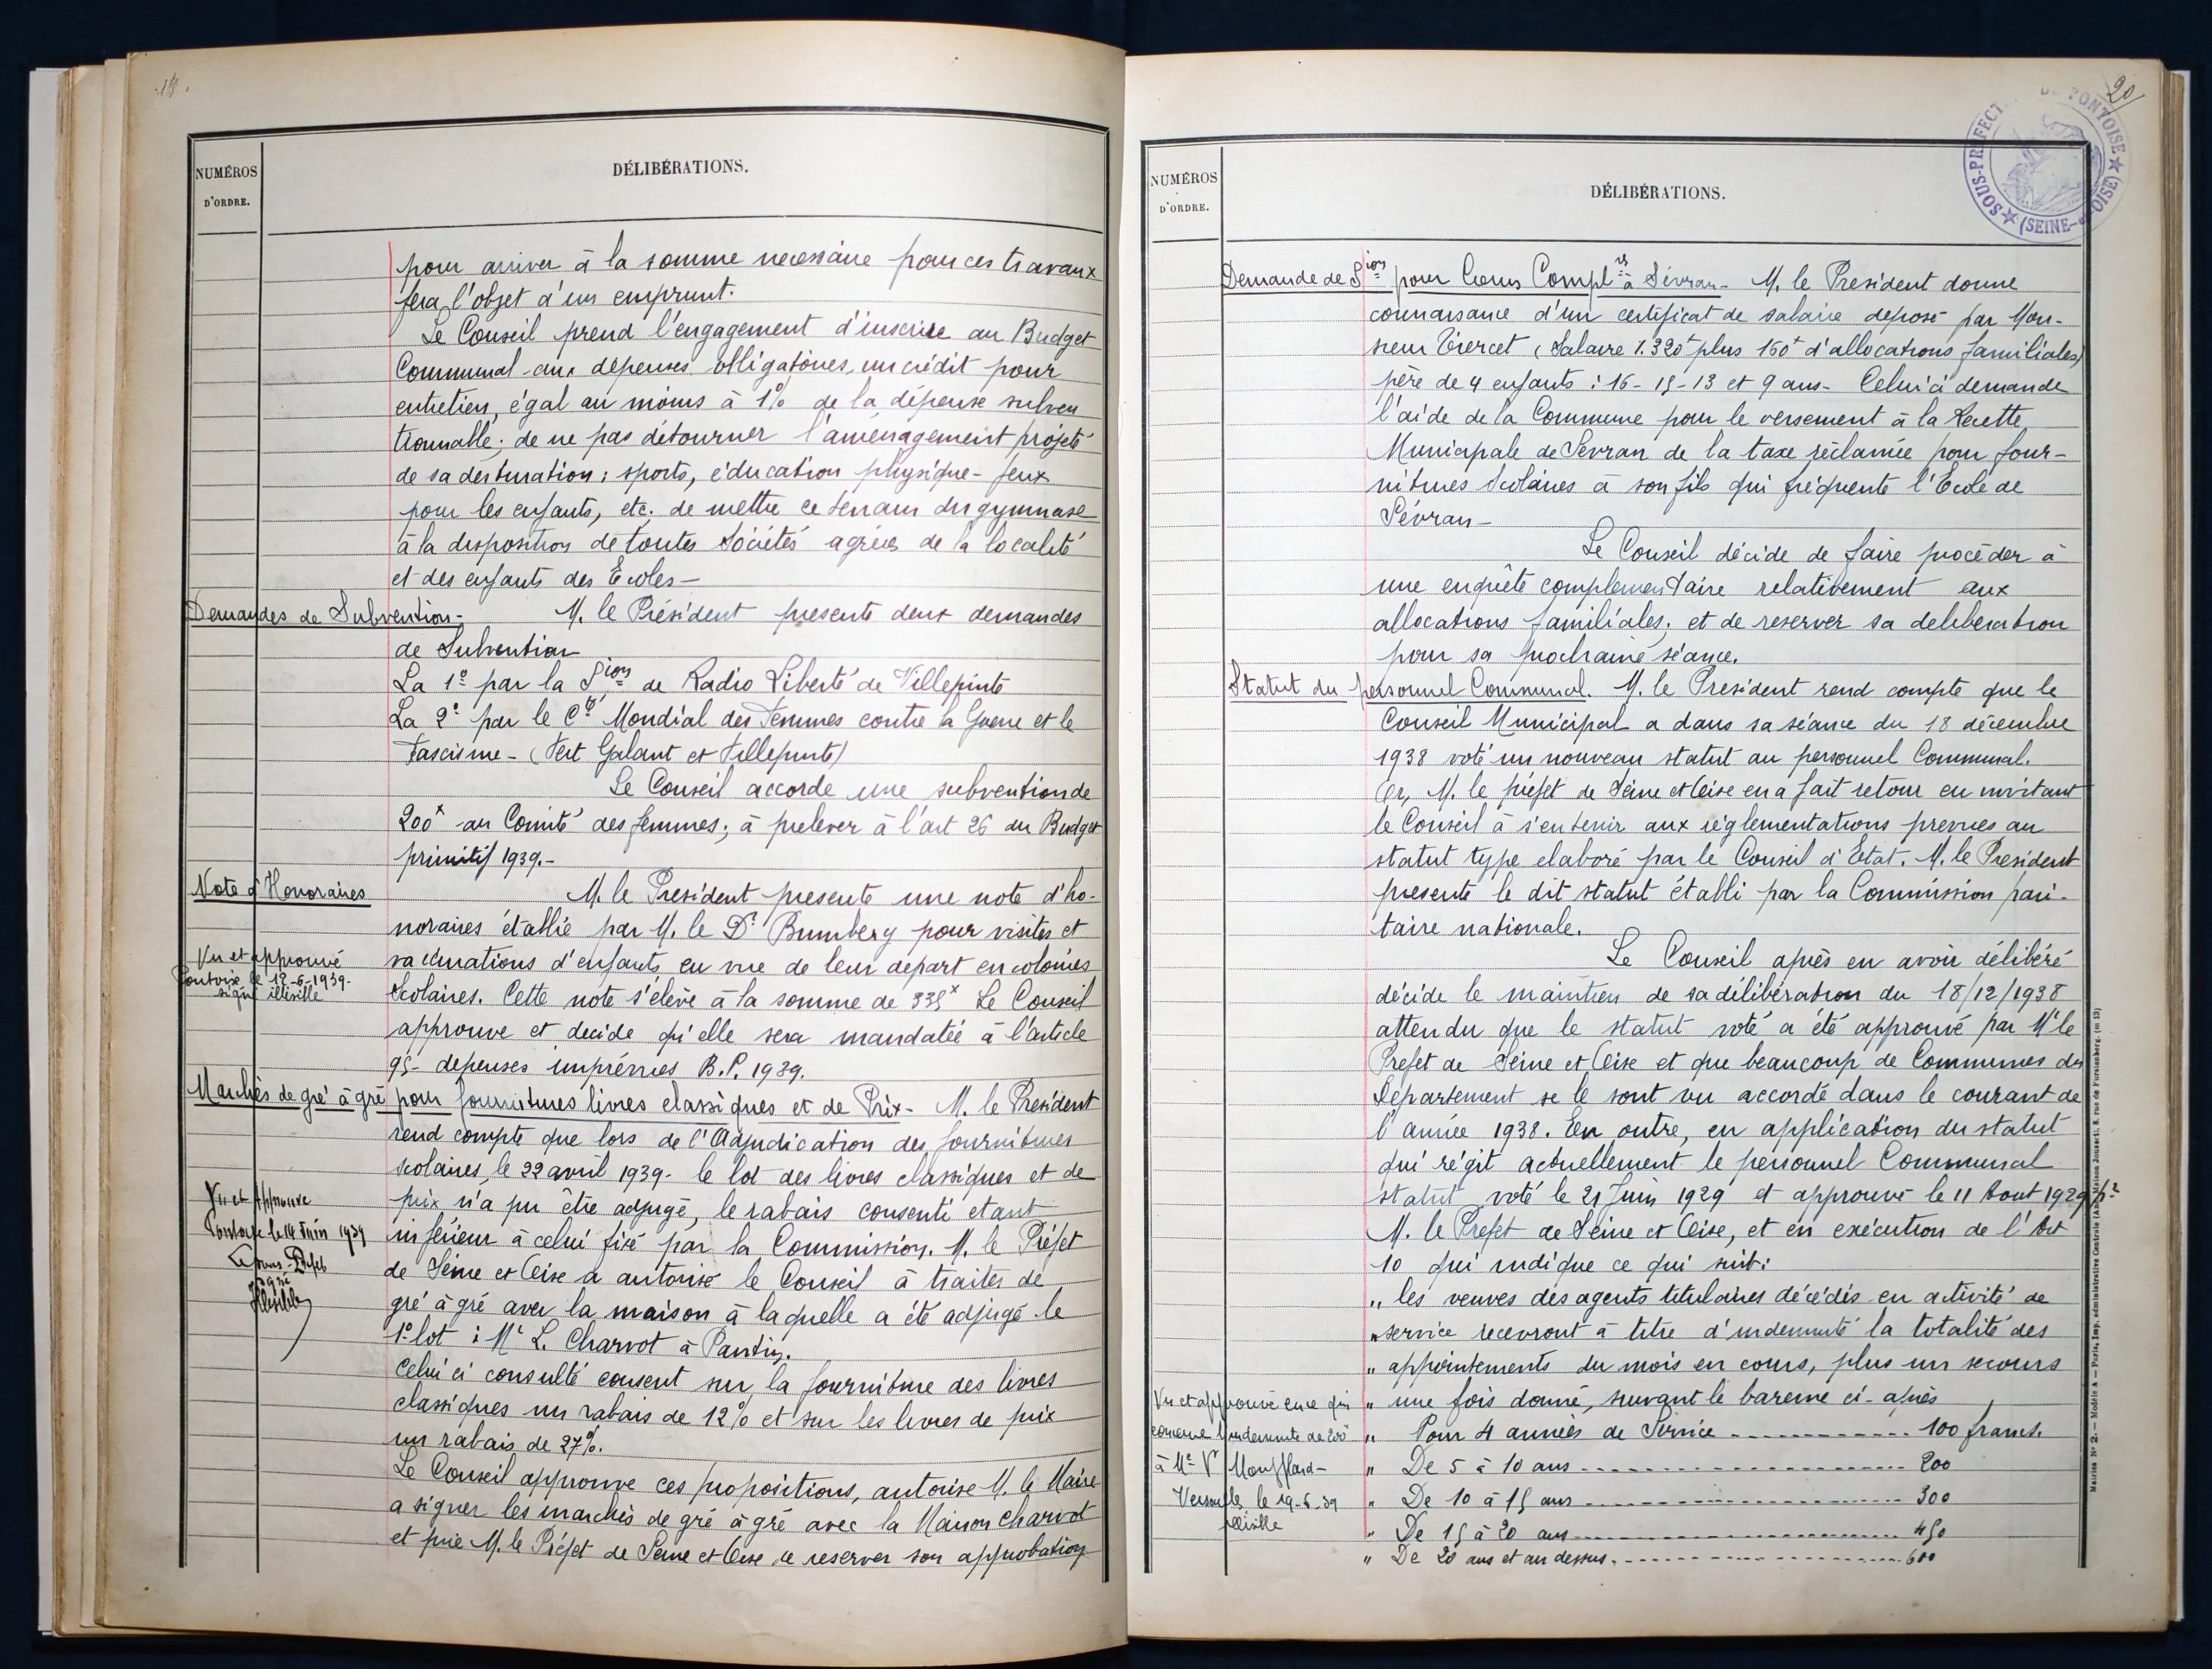 19.
NUMÉROS
D'ORDRE.
DÉLIBÉRATIONS.
pour arriver à la somme necessaire pour ces travaux
fera l'objet d'un emprunt.
Le Conseil prend l'engagement d'inscrire au Budget
Communal aux dépenses obligatoires, un crédit pour
entretien, égal au moins à 1% de la dépense subven
tionnable; de ne pas détourner l'aménagement projeté
de sa destination: sports, éducation physique - jeux
pour les enfants, etc. de mettre ce terrain du gymnase
à la disposition de toutes Sociétés agréées de la localité
et des enfants des Ecoles -
Demandes de Subvention - M. le Président presente deux demandes
de Subvention
La 1º par la Sion de Radio Liberté de Villepinte
La 2º par le Cté Mondial des Femmes contre la Guerre et le
Fascisme - (Vert Galant et Villepinte)
Le Conseil accorde une subvention de
200x au Comité des femmes; à prelever à l'art 26 du Budget
primitif 1939.-
Note d'Honoraires
M. le President presente une note d'ho-
noraires établie par M. le Dr Brumberg pour visites et
vaccinations d'enfants en vue de leur depart en colonies
Scolaires. Cette note s'elève à la somme de 335x Le Conseil
approuve et decide qu'elle sera mandatée à l'article
95 - depenses imprévues B.P. 1939.
Vu et approuvé
Pontoise le 12-6-1939-
signé illisible
Marchés de gré à gré pour fournitures livres classiques et de Prix - M. le President
rend compte que lors de l'Adjudication des fournitures
scolaires, le 22 avril 1939 - le lot des livres classiques et de
prix n'a pu être adjugé, le rabais consenti etant
inférieur à celui fixé par la Commission. M. le Préfet
de Seine et Oise a autorisé le Conseil à traiter de
gré à gré avec la maison à laquelle a été adjugé le
1º lot : Mr L. Charvot à Pantin.
Celui ci consulté consent sur la fourniture des livres
classiques un rabais de 12% et sur les livres de prix
un rabais de 27%.
Le Conseil approuve ces propositions, autorise M. le Maire
a signer les marchés de gré à gré avec la Maison Charvot
et prie M. le Préfet de Seine et Oise de reserver son approbation
Vu et Approuve
Pontoise le 14 Juin 1939
Le Sous-Préfet
signé
Illisible
20
SOUS-PRÉFECTURE DE PONTOISE
(SEINE-&-OISE)
NUMÉROS
D'ORDRE.
DÉLIBÉRATIONS.
Demande de Sion pour Cours Complres à Sévran - M. le President donne
connaissance d'un certificat de salaire deposé par Mon-
sieur Tiercet (Salaire 1.320+ plus 160+ d'allocations familiales)
père de 4 enfants : 16 - 15 - 13 et 9 ans - Celui ci demande
l'aide de la Commune pour le versement à la Recette
Municipale de Sevran de la taxe réclamée pour four-
nitures Scolaires à son fils qui fréquente l'Ecole de
Sévran -
Le Conseil décide de faire procéder à
une enquête complementaire relativement aux
allocations familiales, et de reserver sa deliberation
pour sa prochaine séance.
Statut du personnel Communal. M. le President rend compte que le
Conseil Municipal a dans sa séance du 18 décembre
1938 voté un nouveau statut au personnel Communal.
Or, M. le préfet de Seine et Oise en a fait retour en invitant
le Conseil à s'en tenir aux réglementations prevues au
statut type elaboré par le Conseil d'Etat. M. le President
presente le dit statut établi par la Commission pari-
taire nationale.
Le Conseil après en avoir délibéré
décide le maintien de sa délibération du 18/12/1938
attendu que le statut voté a été approuvé par Mr le
Prefet de Seine et Oise et que beaucoup de Communes du
Département se le sont vu accordé dans le courant de
l'année 1938. En outre, en application du statut
qui régit actuellement le personnel Communal
statut voté le 21 Juin 1929 et approuvé le 11 Aout 1929 pr
M. le Prefet de Seine et Oise, et en exécution de l'Art
10 qui indique ce qui suit :
" les veuves des agents titulaires décédés en activité de
" service recevront à titre d'indemnité la totalité des
" appointements du mois en cours, plus un secours
" une fois donné, suivant le bareme ci-après
" Pour 4 années de Service ------------ 100 francs.
" De 5 à 10 ans ------------ 200
" De 10 à 15 ans ------------ 300
" De 15 à 20 ans ------------ 450
" De 20 ans et au dessus. ------------ 600
Vu et approuvé en ce qui
concerne l'indemnité de 200
à Me Ve Mouffard -
Versailles le 19-6-39
illisible
Mairies Nº 2. — Modèle A — Paris, Imp. administrative Centrale (Anc. Maison Jousset), 8, rue de Furstenberg. (m 13)